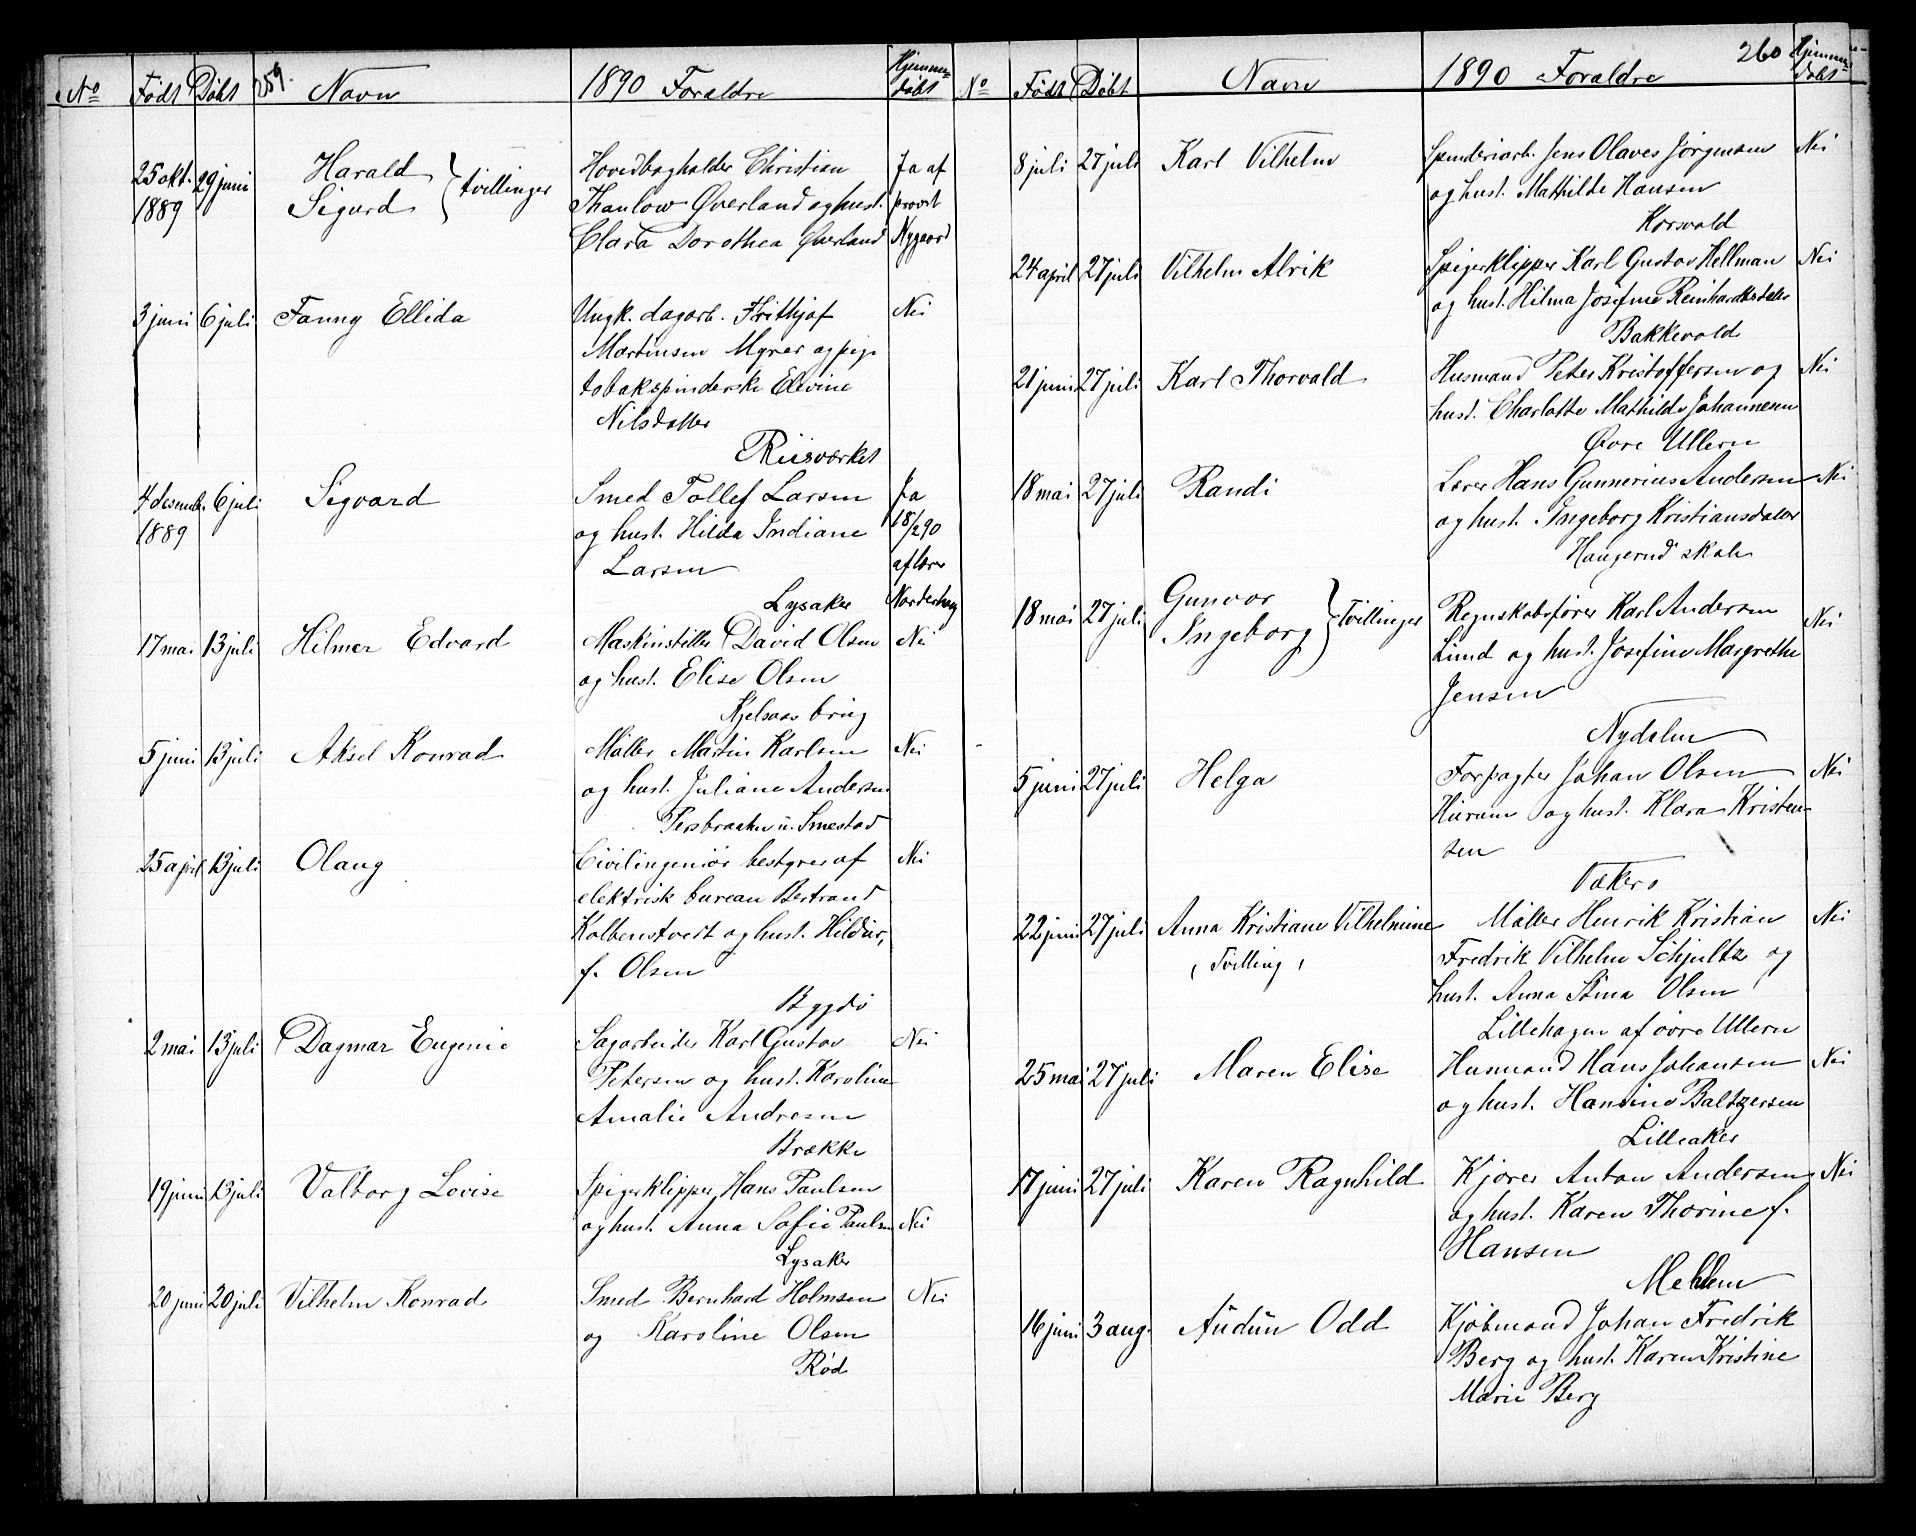 No Født Døbt 259. Navn 1890 Foraldre Hjemmedøbt
25 okt. 1889 29 juni Harald Sigurd } tvillinger
Hovedbogholder Christian
Thaulow Øverland og hust.
Clara Dorothea Øverland
Ja af
provst
Nygaard
3 juni 6 juli Fanny Ellida
Ungk. dagarb. Frithjof
Martinsen Myrer og pige
tobakspinderske Elevine
Nilsdatter
Riisværket
Nei
4 desemb. 1889 6 juli Sigvard
Smed Tollef Larsen
og hust. Hilda Indiane
Larsen
Lysaker
Ja
18/2 90
af lærer
Norderhug
17 mai 13 juli Hilmer Edvard
Maskinstiller David Olsen
og hust. Elise Olsen
Kjelsaas brug
Nei
5 juni 13 juli Aksel Konrad
Møller Martin Karlsen
og hust. Juliane Andersen
Persbraaten u. Smestad
Nei
25 april 13 juli Olaug
Civilingeniør bestyrer af
elektrisk bureau Bertrand
Kolbenstvedt og hust. Hildur,
f. Olsen
Bygdø
Nei
2 mai 13 juli Dagmar Eugenie
Sagarbeider Karl Gustav
Petersen og hust. Karoline
Amalie Andresen
Brække
Nei
19 juni 13 juli Valborg Lovise
Spigerklipper Hans Paulsen
og hust. Anna Sofie Paulsen
Lysaker
Nei
20 juni 20 juli Vilhelm Konrad
Smed Bernhard Holmsen
og Karoline Olsen
Rød
Nei
No Født Døbt Navn 1890 Foraldre 260 Hjemmedøbt
8 juli 27 juli Karl Vilhelm
Spinderiarb. Jens Olaves Jørgensen
og hust. Mathilde Hansen
Korsvold
Nei
24 april 27 juli Vilhelm Alrik
Spigerklipper Karl Gustav Hellman
og hust. Hilma Josefine Reinhardtsdatter
Bakkevold
Nei
21 juni 27 juli Karl Thorvald
Husmand Peter Kristoffersen og
hust. Charlotte Mathilde Johannesen
Øvre Ullern
Nei
18 mai 27 juli Randi
Lærer Hans Gunnerius Andersen
og hust. Ingeborg Kristiansdatter
Haugerud skole
Nei
18 mai 27 juli Gunvor Ingeborg } Tvillinger
Regnskabsfører Karl Andersen
Lund og hust. Josefine Margrethe
Jensen
Nydalen
Nei
5 juni 27 juli Helga
Forpagter Johan Olsen
Hurum og hust. Klara Kristen-
sen
Vækerø
Nei
22 juni 27 juli Anna Kristiane Vilhelmine
( Tvilling )
Møller Henrik Kristian
Fredrik Vilhelm Schjultz og
hust. Anna Stina Olsen
Lillehagen af øvre Ullern
Nei
25 mai 27 juli Maren Elise
Husmand Hans Johansen
og hust. Hansine Baltzersen
Lilleaker
Nei
17 juni 27 juli Karen Ragnhild
Kjører Anton Andersen
og hust. Karen Thorine f.
Hansen
Mehlum
Nei
16 juni 3 aug. Audun Odd
Kjøbmand Johan Fredrik
Berg og hust. Karen Kristine
Marie Berg